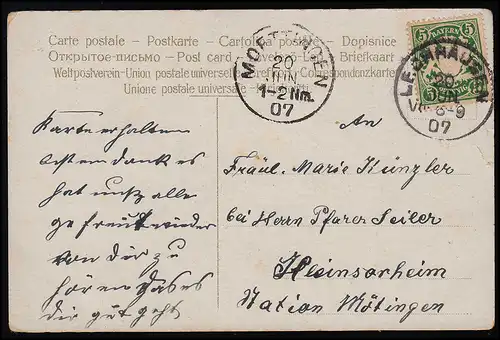 Carte postale - Postkarte - Cartolina postale - Dopisnice
Открытое-письмо - Post card - Levelező-Lap - Briefkaart
Weltpostverein-Union postale universelle Brefkort - Correspondenzkarte
Unione postale universale -
MOETTINGEN
20
JUN
1-2 Nm.
07
5 BAYERN 5
LECHHAUSEN
20
JUN
VM 8-9
07
Karte erhalten
besten dank es
hat uns alle
gefreut wieder
von Dir zu
hören das es
Dir gut geht
An
Fräul. Marie Künzler
bei Herrn Pfarer Seiler
Heinsorheim
Station Mötingen